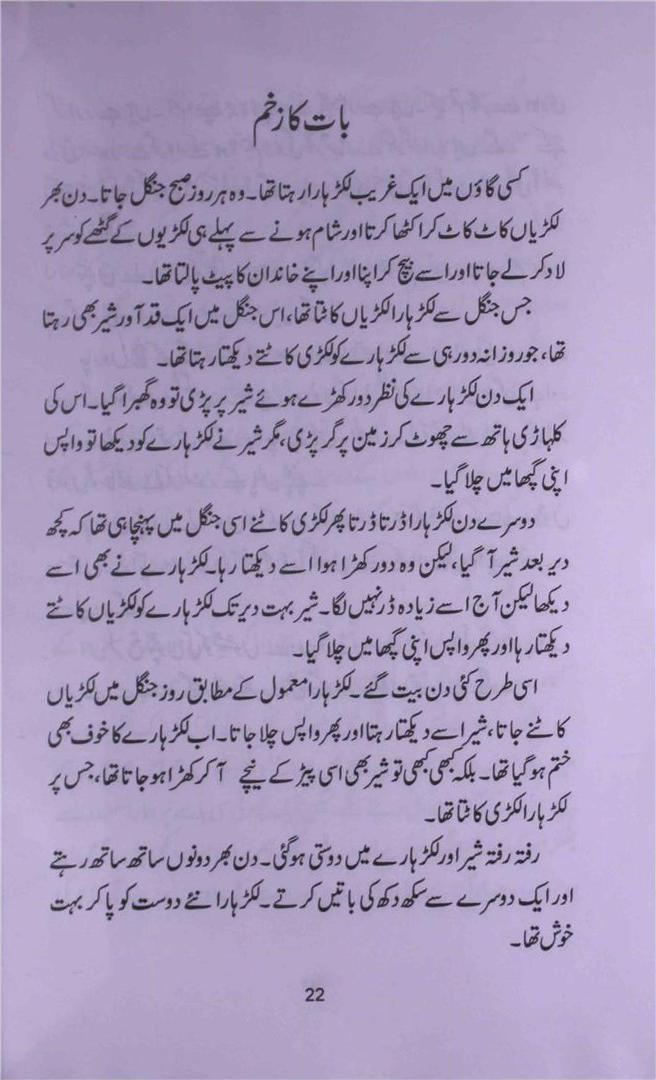 بات کا زخم
کسی گاؤں میں ایک غریب لکڑہارا رہتا تھا۔ وہ ہر روز صبح جنگل جاتا۔ دن بھر
لکڑیاں کاٹ کاٹ کر اکٹھا کرتا اور شام ہونے سے پہلے ہی لکڑیوں کے گٹھے کو سر پر
لاد کر لے جاتا اور اسے بیچ کر اپنا اور اپنے خاندان کا پیٹ پالتا تھا۔
جس جنگل سے لکڑہارا لکڑیاں کاٹتا تھا، اس جنگل میں ایک قد آور شیر بھی رہتا
تھا، جو روزانہ دور ہی سے لکڑہارے کو لکڑی کاٹتے دیکھتا رہتا تھا۔
ایک دن لکڑہارے کی نظر دور کھڑے ہوئے شیر پر پڑی تو وہ گھبرا گیا۔ اس کی
کلہاڑی ہاتھ سے چھوٹ کر زمین پر گر پڑی، مگر شیر نے لکڑہارے کو دیکھا تو واپس
اپنی گپھا میں چلا گیا۔
دوسرے دن لکڑہارا ڈرتا ڈرتا پھر لکڑی کاٹنے اسی جنگل میں پہنچا ہی تھا کہ کچھ
دیر بعد شیر آ گیا، لیکن وہ دور کھڑا ہوا اسے دیکھتا رہا۔ لکڑہارے نے بھی اسے
دیکھا لیکن آج اسے زیادہ ڈر نہیں لگا۔ شیر بہت دیر تک لکڑہارے کو لکڑیاں کاٹتے
دیکھتا رہا اور پھر واپس اپنی گپھا میں چلا گیا۔
اسی طرح کئی دن بیت گئے۔ لکڑہارا معمول کے مطابق روز جنگل میں لکڑیاں
کاٹنے جاتا، شیر اسے دیکھتا رہتا اور پھر واپس چلا جاتا۔ اب لکڑہارے کا خوف بھی
ختم ہو گیا تھا۔ بلکہ کبھی کبھی تو شیر بھی اسی پیڑ کے نیچے آ کر کھڑا ہو جاتا تھا، جس پر
لکڑہارا لکڑی کاٹتا تھا۔
رفتہ رفتہ شیر اور لکڑہارے میں دوستی ہو گئی۔ دن بھر دونوں ساتھ ساتھ رہتے
اور ایک دوسرے سے سکھ دکھ کی باتیں کرتے۔ لکڑہارا نئے دوست کو پا کر بہت
خوش تھا۔
22